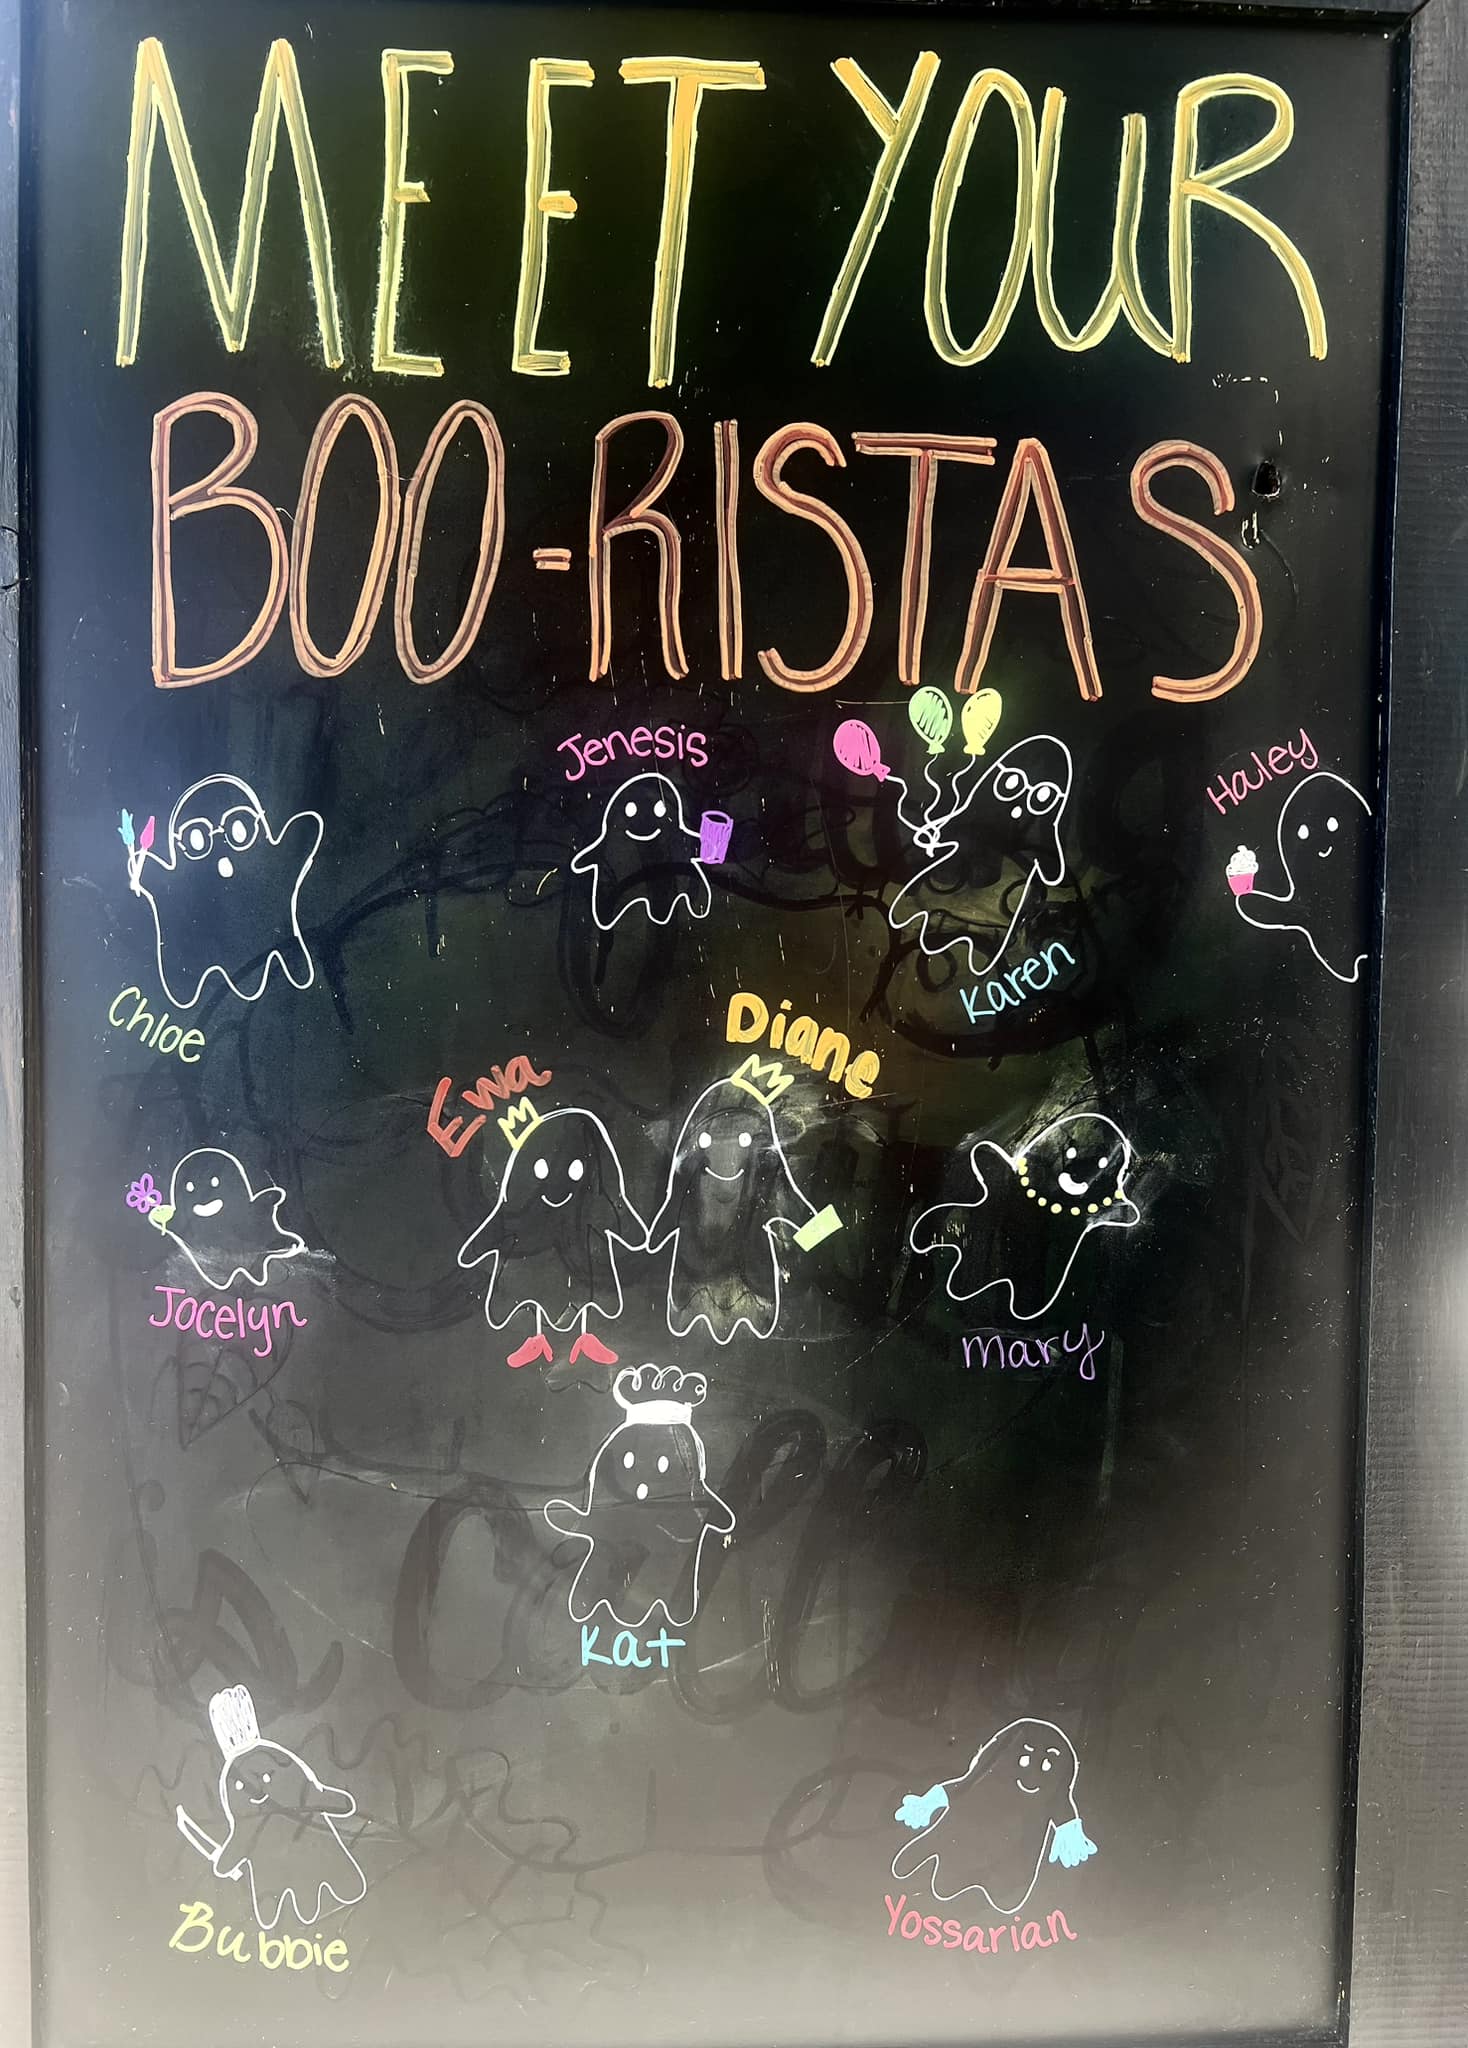 MEET YOUR
BOO-RISTAS
Jenesis
Haley
Chloe
Karen
Ewa
Diane
Jocelyn
Mary
Kat
Bubbie
Yossarian